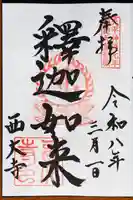 奉拝
令和八年
二月一日
釋迦如来
西大寺